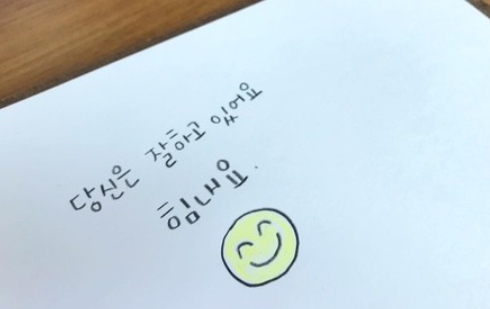 당신은 잘하고 있어요
힘내요.